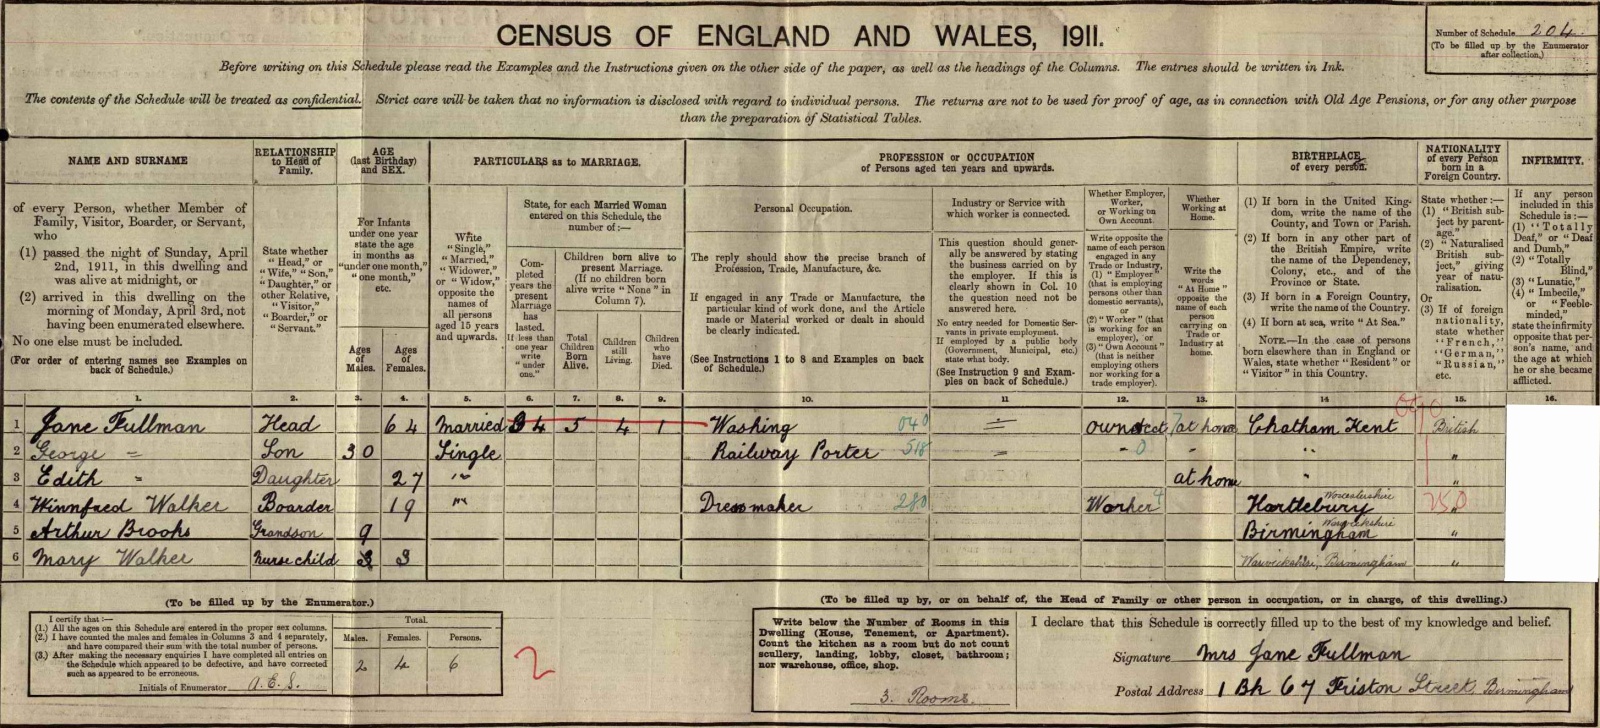 CENSUS OF ENGLAND AND WALES, 1911.
Number of Schedule 204
(To be filled up by the Enumerator
after collection.)
Before writing on this Schedule please read the Examples and the Instructions given on the other side of the paper, as well as the headings of the Columns. The entries should be written in Ink.
The contents of the Schedule will be treated as confidential. Strict care will be taken that no information is disclosed with regard to individual persons. The returns are not to be used for proof of age, as in connection with Old Age Pensions, or for any other purpose
than the preparation of Statistical Tables.
NAME AND SURNAME
of every Person, whether Member of
Family, Visitor, Boarder, or Servant,
who
(1) passed the night of Sunday, April
2nd, 1911, in this dwelling and
was alive at midnight, or
(2) arrived in this dwelling on the
morning of Monday, April 3rd, not
having been enumerated elsewhere.
No one else must be included.
(For order of entering names see Examples on
back of Schedule.)
RELATIONSHIP
to Head of
Family.
State whether
"Head," or
"Wife," "Son,"
"Daughter," or
other Relative,
"Visitor,"
"Boarder," or
"Servant."
AGE
(last Birthday)
and SEX.
For Infants
under one year
state the age
in months as
"under one month,"
"one month,"
etc.
Ages
of
Males.
Ages
of
Females.
PARTICULARS as to MARRIAGE.
Write
"Single,"
"Married,"
"Widower,"
or "Widow,"
opposite the
names of
all persons
aged 15 years
and upwards.
State, for each Married Woman
entered on this Schedule, the
number of:—
Com-
pleted
years the
present
Marriage
has
lasted.
If less than
one year
write
"under
one."
Children born alive to
present Marriage.
(If no children born
alive write "None" in
Column 7).
Total
Children
Born
Alive.
Children
still
Living.
Children
who
have
Died.
PROFESSION or OCCUPATION
of Persons aged ten years and upwards.
Personal Occupation.
The reply should show the precise branch of
Profession, Trade, Manufacture, &c.
If engaged in any Trade or Manufacture, the
particular kind of work done, and the Article
made or Material worked or dealt in should
be clearly indicated.
(See Instructions 1 to 8 and Examples on back
of Schedule.)
Industry or Service with
which worker is connected.
This question should gener-
ally be answered by stating
the business carried on by
the employer. If this is
clearly shown in Col. 10
the question need not be
answered here.
No entry needed for Domestic Ser-
vants in private employment.
If employed by a public body
(Government, Municipal, etc.)
state what body.
(See Instruction 9 and Exam-
ples on back of Schedule.)
Whether Employer,
Worker,
or Working on
Own Account.
Write opposite the
name of each person
engaged in any
Trade or Industry,
(1) "Employer"
(that is employing
persons other than
domestic servants),
or
(2) "Worker" (that
is working for an
employer), or
(3) "Own Account"
(that is neither
employing others
nor working for a
trade employer).
Whether
Working at
Home.
Write the
words
"At Home"
opposite the
name of each
person
carrying on
Trade or
Industry at
home.
BIRTHPLACE
of every person.
(1) If born in the United King-
dom, write the name of the
County, and Town or Parish.
(2) If born in any other part of
the British Empire, write
the name of the Dependency,
Colony, etc., and of the
Province or State.
(3) If born in a Foreign Country,
write the name of the Country.
(4) If born at sea, write "At Sea."
NOTE.—In the case of persons
born elsewhere than in England or
Wales, state whether "Resident" or
"Visitor" in this Country.
NATIONALITY
of every Person
born in a
Foreign Country.
State whether:—
(1) "British sub-
ject by parent-
age."
(2) "Naturalised
British
sub-
ject," giving
year of natu-
ralisation.
Or
(3) If of foreign
nationality,
state whether
"French,"
"German,"
"Russian,"
etc.
INFIRMITY.
If any person
included in this
Schedule is:—
(1) "Totally
Deaf," or "Deaf
and Dumb,"
(2) "Totally
Blind,"
(3) "Lunatic,"
(4) "Imbecile,"
or "Feeble-
minded,"
state the infirmity
opposite that per-
son's name, and
the age at which
he or she became
afflicted.
1. 2. 3. 4. 5. 6. 7. 8. 9. 10. 11 12. 13. 14 15. 16.
1 Jane Fullman Head 64 Married 34 5 4 1 Washing 040 = own acct 7 at home Chatham Kent British
2 George = Son 30 Single Railway Porter 518 = - 0 " "
3 Edith = Daughter 27 " at home " "
4 Winnfred Walker Boarder 19 " Dressmaker 280 Worker 4 Hartlebury Worcestershire 250 "
5 Arthur Brooks Grandson 9 Birmingham Warwickshire "
6 Mary Walker nurse child 3 3 Warwickshire, Birmingham "
(To be filled up by the Enumerator.)
I certify that:—
(1.) All the ages on this Schedule are entered in the proper sex columns.
(2.) I have counted the males and females in Columns 3 and 4 separately,
and have compared their sum with the total number of persons.
(3.) After making the necessary enquiries I have completed all entries on
the Schedule which appeared to be defective, and have corrected
such as appeared to be erroneous.
Initials of Enumerator A.E.S.
Total.
Males. Females. Persons.
2 4 6
2
(To be filled up by, or on behalf of, the Head of Family or other person in occupation, or in charge, of this dwelling.)
Write below the Number of Rooms in this
Dwelling (House, Tenement, or Apartment).
Count the kitchen as a room but do not count
scullery, landing, lobby, closet, bathroom;
nor warehouse, office, shop.
3. Rooms.
I declare that this Schedule is correctly filled up to the best of my knowledge and belief.
Signature Mrs Jane Fullman
Postal Address 1 Bk 67 Friston Street, Birmingham